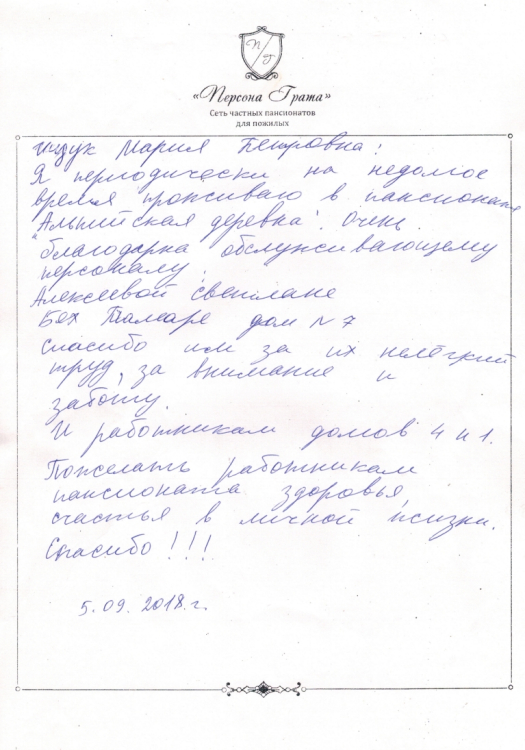 П Г
«Персона Грата»
Сеть частных пансионатов
для пожилых
Ищук Мария Петровна:
Я периодически на недолгое
время проживаю в пансионате
"Альпийская деревня". Очень
благодарна обслуживающему
персоналу.
Алексеевой Светлане
Бех Тамаре дом №7
Спасибо им за их нелёгкий
труд, за внимание и
заботу.
И работникам домов 4 и 1.
Пожелать работникам
пансионата здоровья,
счастья в личной жизни.
Спасибо!!!
5.09.2018.г.